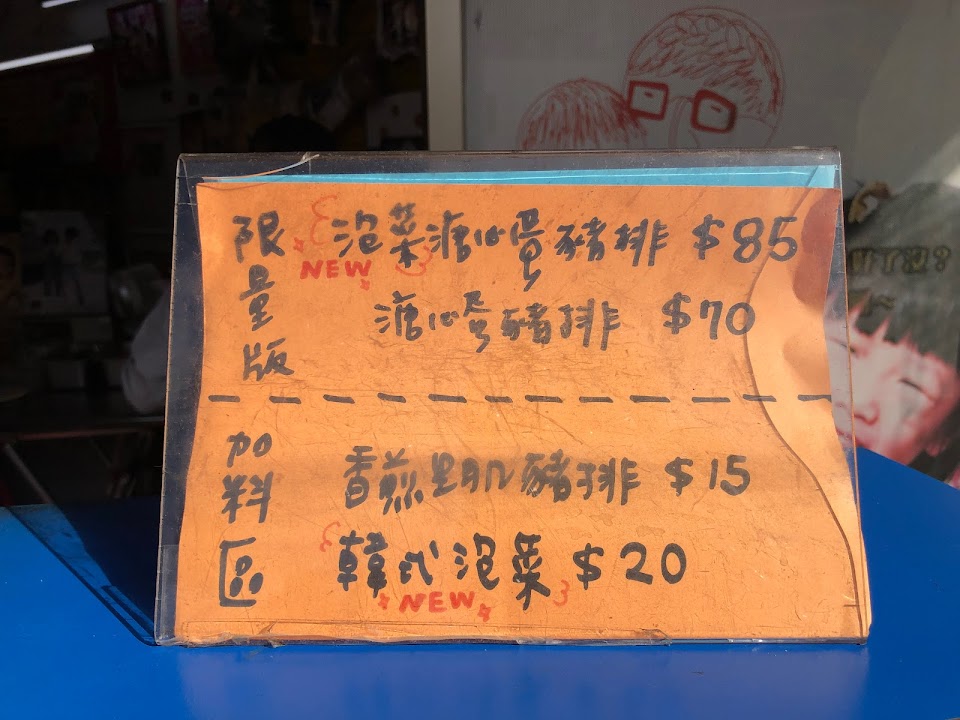 限量版
泡菜溏心蛋豬排 $85
NEW
溏心蛋豬排 $70
加料區
香煎里肌豬排 $15
韓式泡菜 $20
NEW